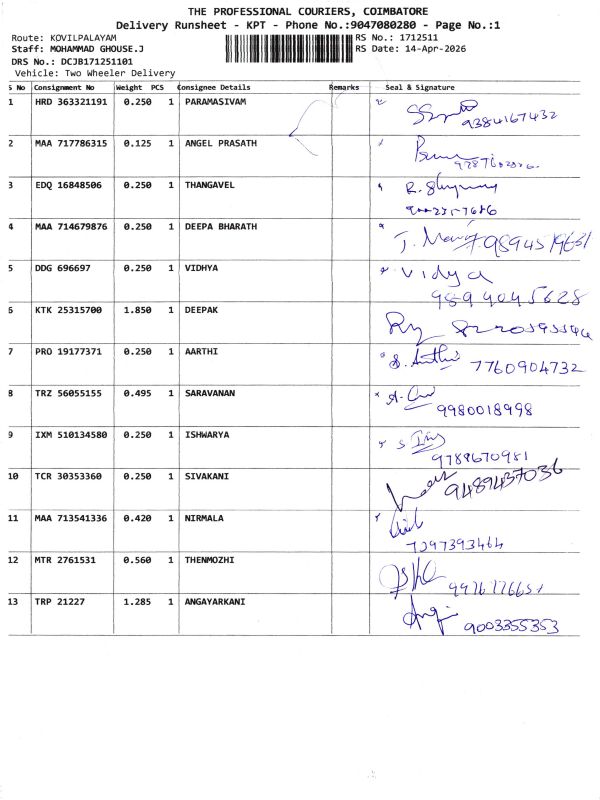 THE PROFESSIONAL COURIERS, COIMBATORE
Delivery Runsheet - KPT - Phone No.:9047080280 - Page No.:1
Route: KOVILPALAYAM RS No.: 1712511
Staff: MOHAMMAD GHOUSE.J RS Date: 14-Apr-2026
DRS No.: DCJB171251101
Vehicle: Two Wheeler Delivery
S No Consignment No Weight PCS Consignee Details Remarks Seal & Signature
1 HRD 363321191 0.250 1 PARAMASIVAM
9384167432
2 MAA 717786315 0.125 1 ANGEL PRASATH
3 EDQ 16848506 0.250 1 THANGAVEL
4 MAA 714679876 0.250 1 DEEPA BHARATH
5 DDG 696697 0.250 1 VIDHYA Vidya
9894045628
6 KTK 25315700 1.850 1 DEEPAK
7 PRO 19177371 0.250 1 AARTHI 7760904732
8 TRZ 56055155 0.495 1 SARAVANAN
9980018998
9 IXM 510134580 0.250 1 ISHWARYA
9789670981
10 TCR 30353360 0.250 1 SIVAKANI 9489437036
11 MAA 713541336 0.420 1 NIRMALA
7397393464
12 MTR 2761531 0.560 1 THENMOZHI
13 TRP 21227 1.285 1 ANGAYARKANI
9003355353